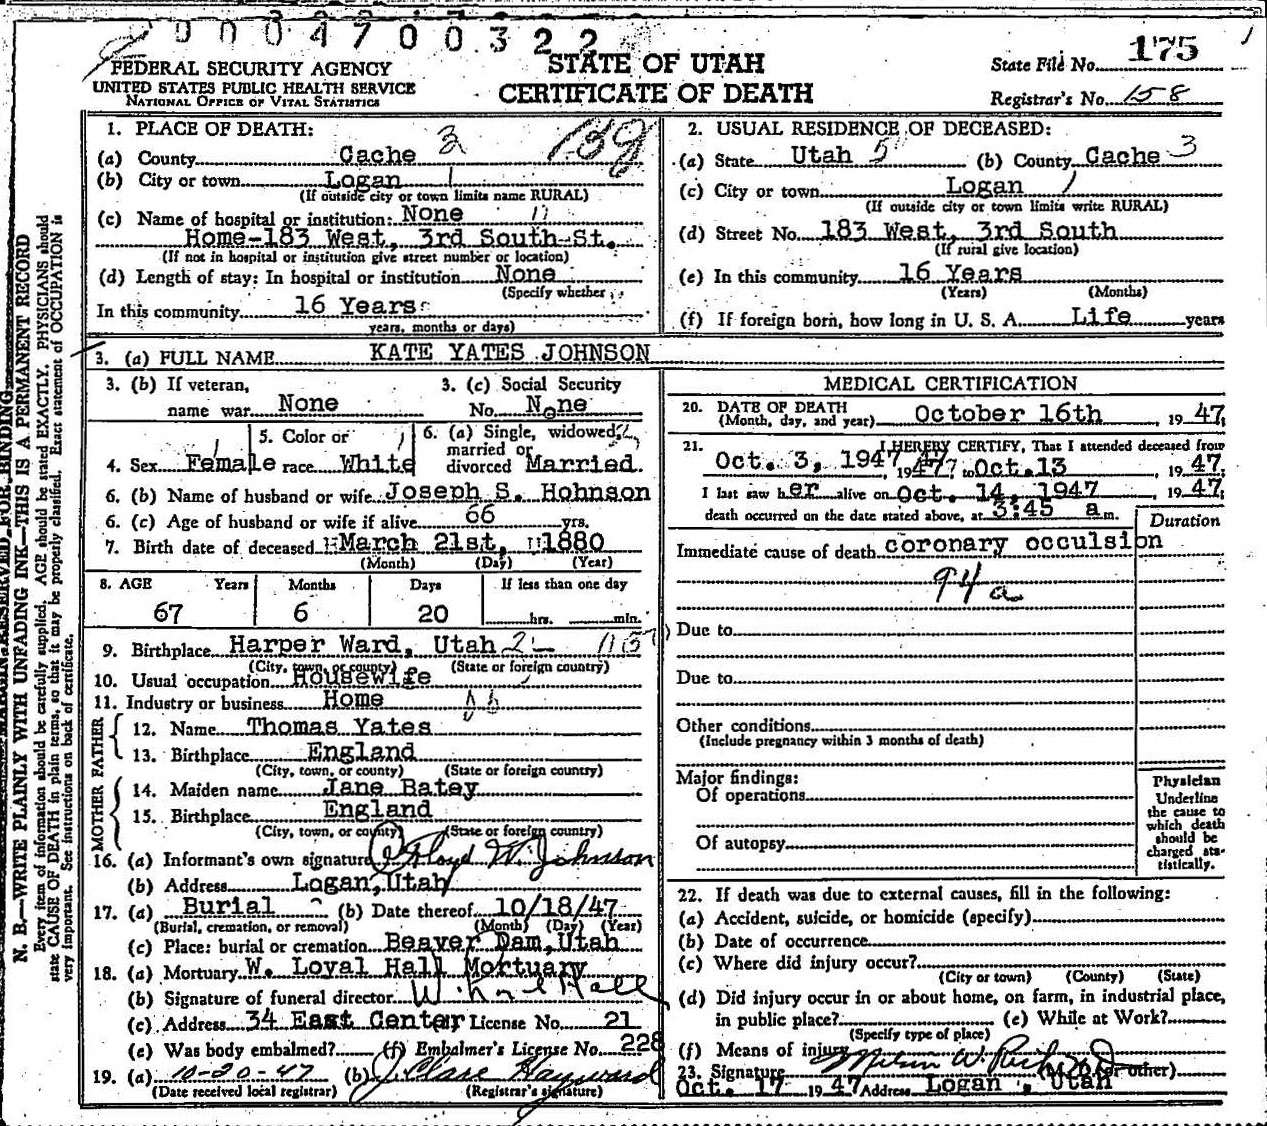 000470 0322
FEDERAL SECURITY AGENCY
UNITED STATES PUBLIC HEALTH SERVICE
NATIONAL OFFICE OF VITAL STATISTICS
STATE OF UTAH
CERTIFICATE OF DEATH
State File No. 175
Registrar's No. 158
N. B.—WRITE PLAINLY WITH UNFADING INK—THIS IS A PERMANENT RECORD
Every item of information should be carefully supplied. AGE should be stated EXACTLY. PHYSICIANS should
state CAUSE OF DEATH in plain terms, so that it may be properly classified. Exact statement of OCCUPATION is
very important. See instructions on back of certificate.
1. PLACE OF DEATH:
(a) County Cache 3
(b) City or town Logan 1
(If outside city or town limits name RURAL)
(c) Name of hospital or institution: None
Home-183 West, 3rd South St.
(If not in hospital or institution give street number or location)
(d) Length of stay: In hospital or institution None
(Specify whether
In this community 16 Years
years, months or days)
2. USUAL RESIDENCE OF DECEASED:
(a) State Utah 5 (b) County Cache 3
(c) City or town Logan 1
(If outside city or town limits write RURAL)
(d) Street No. 183 West, 3rd South
(If rural give location)
(e) In this community 16 Years
(Years) (Months)
(f) If foreign born, how long in U. S. A. Life years
3. (a) FULL NAME KATE YATES JOHNSON
3. (b) If veteran,
name war None
3. (c) Social Security
No. None
4. Sex Female
5. Color or
race White
6. (a) Single, widowed,
married or
divorced Married.
6. (b) Name of husband or wife Joseph S. Hohnson
6. (c) Age of husband or wife if alive 66 yrs.
7. Birth date of deceased March 21st, 1880
(Month) (Day) (Year)
8. AGE Years Months Days If less than one day
67 6 20 hrs. min.
9. Birthplace Harper Ward, Utah
(City, town, or county) (State or foreign country)
10. Usual occupation Housewife
11. Industry or business Home
FATHER
12. Name Thomas Yates
13. Birthplace England
(City, town, or county) (State or foreign country)
MOTHER
14. Maiden name Jane Batey
15. Birthplace England
(City, town, or county) (State or foreign country)
16. (a) Informant's own signature Floyd W. Johnson
(b) Address Logan, Utah
17. (a) Burial (b) Date thereof 10/18/47
(Burial, cremation, or removal) (Month) (Day) (Year)
(c) Place: burial or cremation Beaver Dam, Utah
18. (a) Mortuary W. Loyal Hall Mortuary
(b) Signature of funeral director W. Hall
(c) Address 34 East Center License No. 21
(e) Was body embalmed? (f) Embalmer's License No. 228
19. (a) 10-20-47 (b) J. Clare Hayward
(Date received local registrar) (Registrar's signature)
MEDICAL CERTIFICATION
20. DATE OF DEATH
(Month, day, and year) October 16th, 1947
21. I HEREBY CERTIFY, That I attended deceased from
Oct. 3, 1947, 1947 to Oct. 13, 1947
I last saw her alive on Oct. 14, 1947, 1947;
death occurred on the date stated above, at 3:45 a m.
Duration
Immediate cause of death coronary occulsion
94a
Due to
Due to
Other conditions
(Include pregnancy within 3 months of death)
Major findings:
Of operations
Of autopsy
Physician
Underline
the cause to
which death
should be
charged sta-
tistically.
22. If death was due to external causes, fill in the following:
(a) Accident, suicide, or homicide (specify)
(b) Date of occurrence
(c) Where did injury occur?
(City or town) (County) (State)
(d) Did injury occur in or about home, on farm, in industrial place,
in public place? (e) While at Work?
(Specify type of place)
(f) Means of injury
23. Signature (M. D. or other)
Oct. 17 1947 Address Logan, Utah